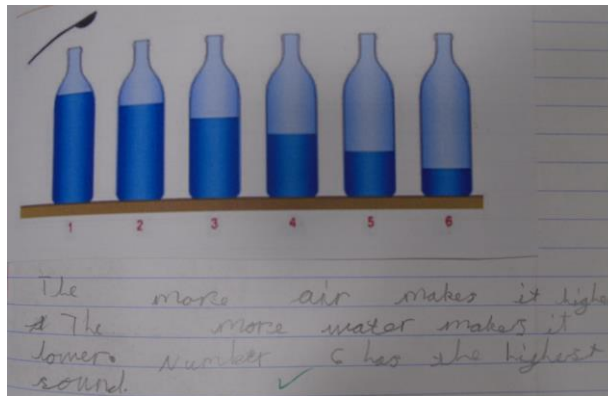 1 2 3 4 5 6
The more air makes it highe
The more water makes it
lower. Number 6 has the highest
sound.